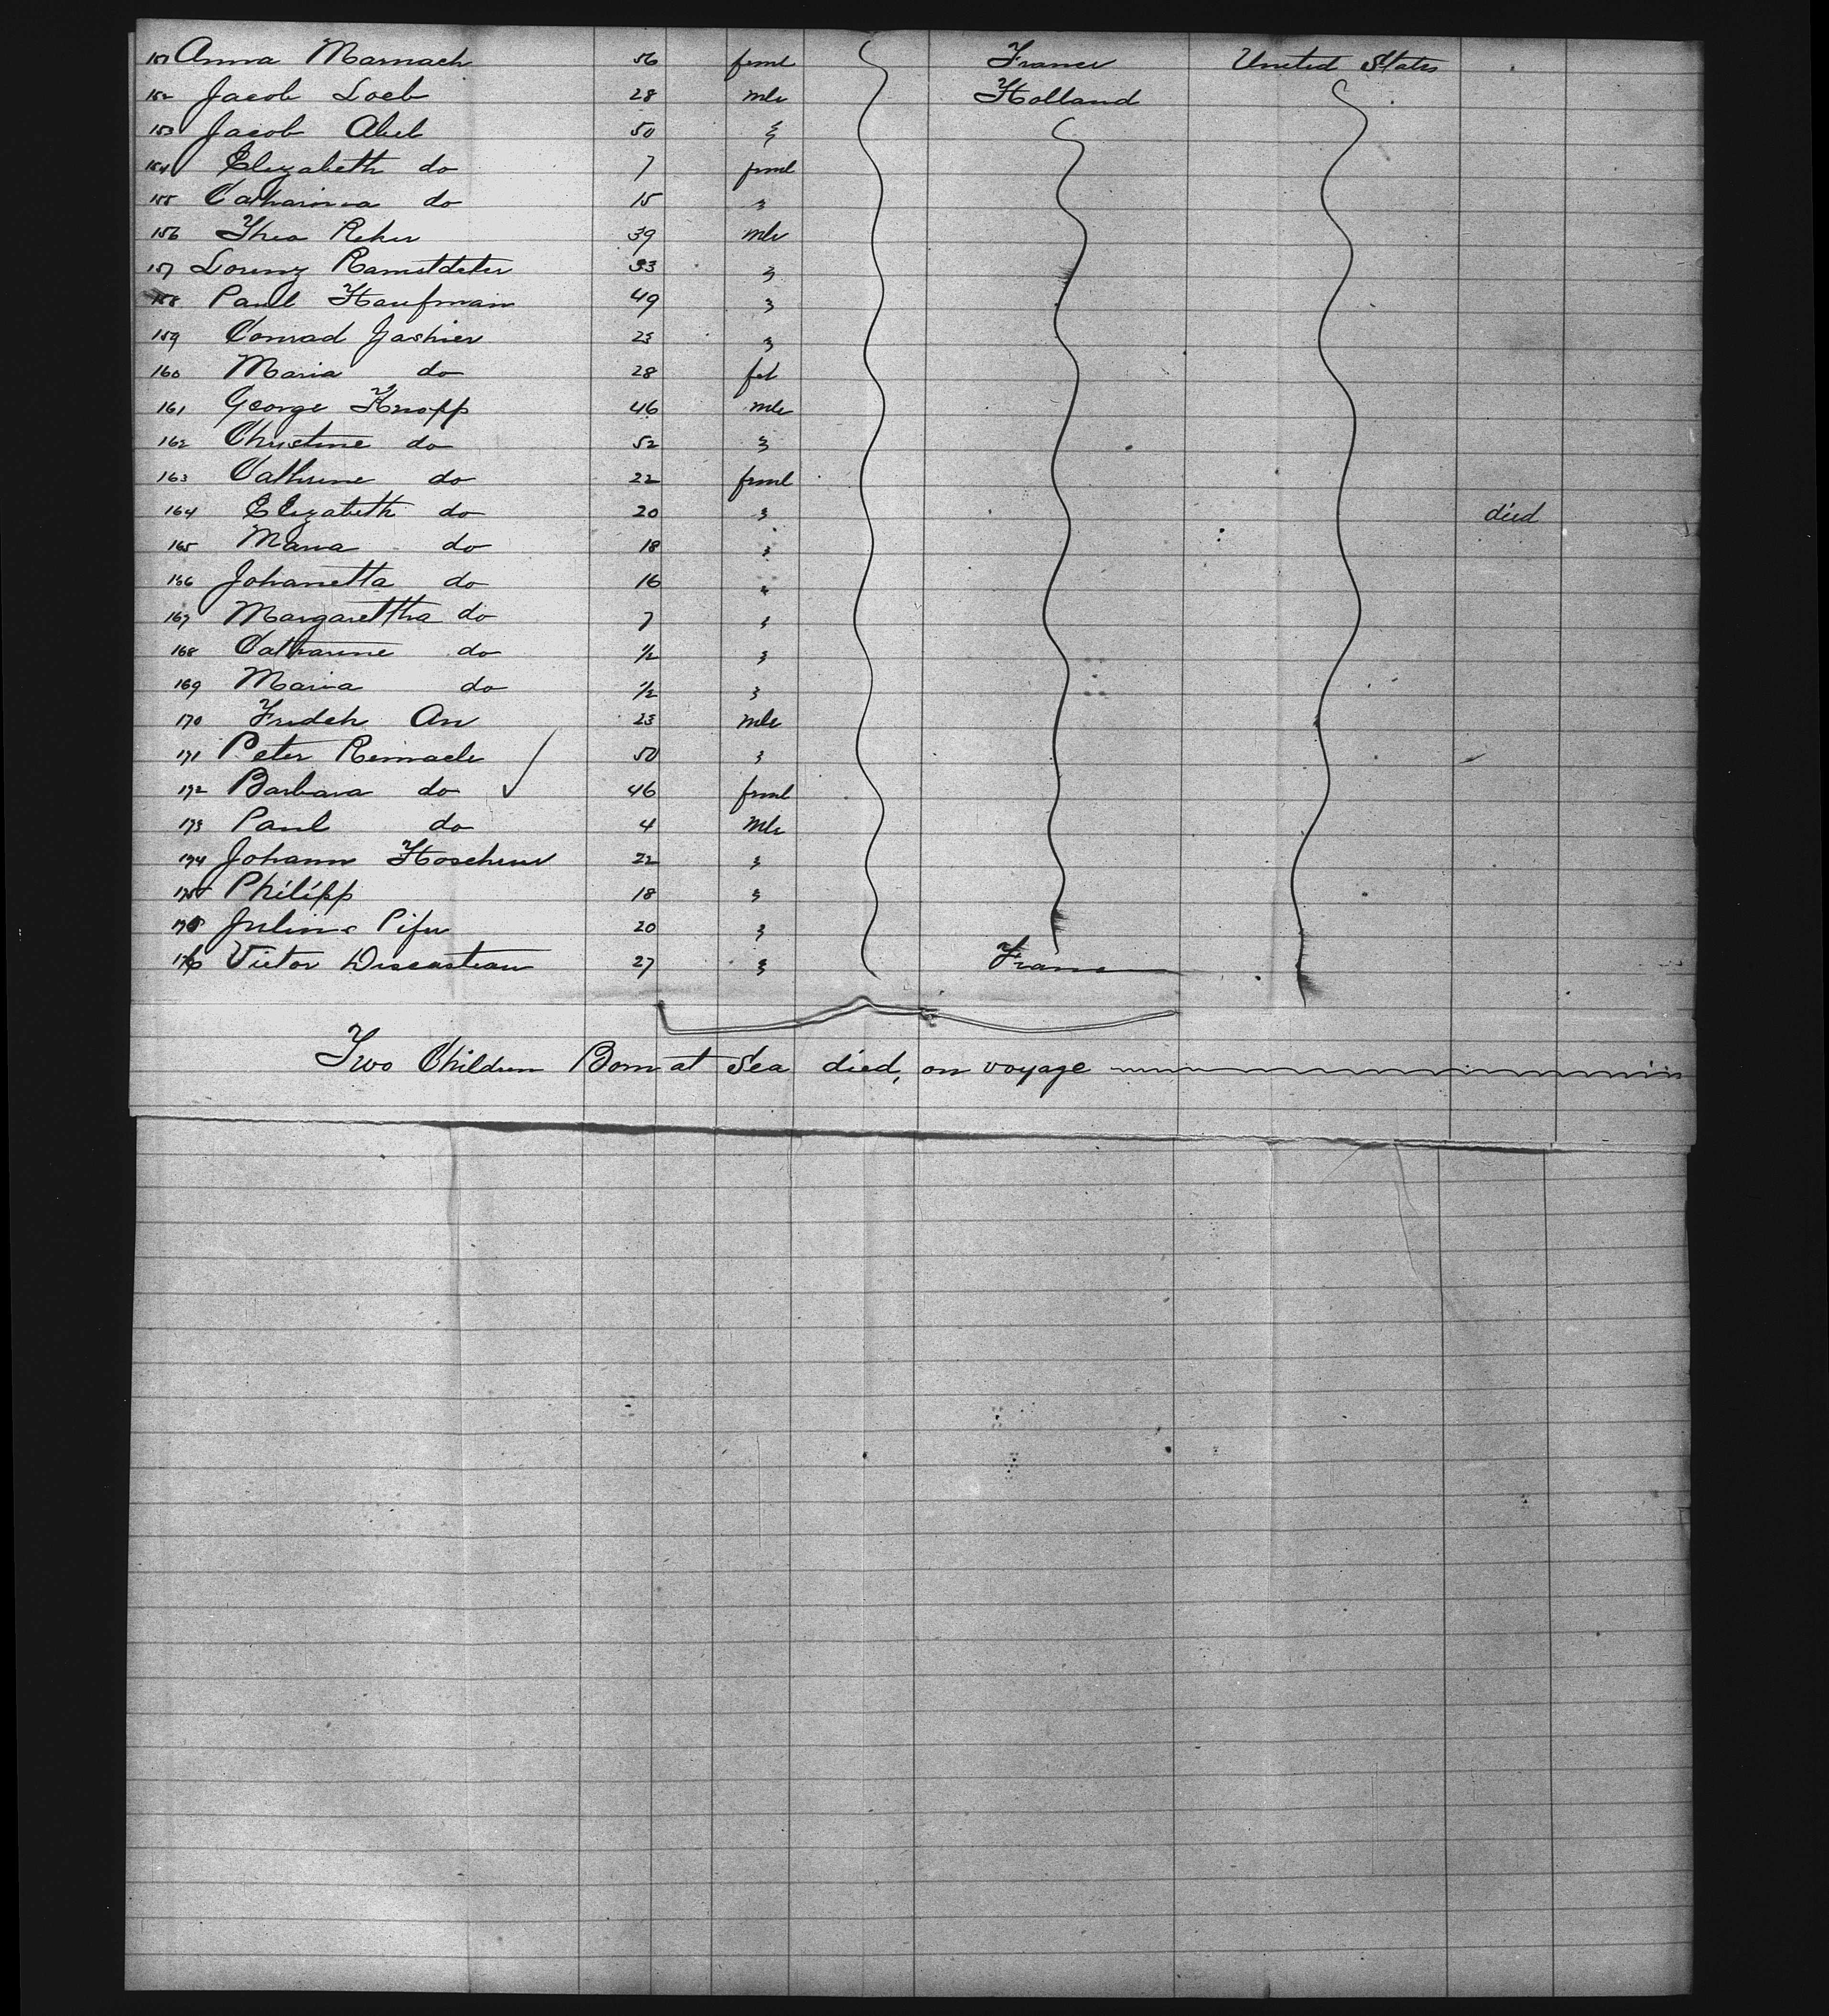 151 Anna Marnach 56 feml France United States
152 Jacob Loeb 28 mle Holland
153 Jacob Abel 50 "
154 Elizabeth do 7 feml
155 Catharina do 15 "
156 Theo Reker 39 mle
157 Lorenz Ramstdeter 33 "
158 Paul Haufman 49 "
159 Conrad Jashier 23 "
160 Maria do 28 fel
161 George Knopp 46 mle
162 Christine do 52 "
163 Cathrine do 22 feml
164 Elizabeth do 20 " died
165 Maria do 18 "
166 Johanetta do 16 "
167 Margarettha do 7 "
168 Catharine do 1/2 "
169 Maria do 1/2 "
170 Fridch An 23 mle
171 Peter Remacle 50 "
172 Barbara do 46 feml
173 Paul do 4 Mle
174 Johann 22 "
175 Philipp 18 "
Julius Pifer 20 "
176 Victor 27 " France
Two Children Born at Sea died, on voyage